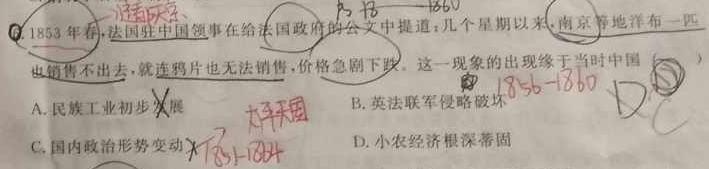 1856 1860
1853年春,法国驻中国领事在给法国政府的公文中提道:几个星期以来,南京等地洋布一匹
也销售不出去,就连鸦片也无法销售,价格急剧下跌。这一现象的出现缘于当时中国( )
1856-1860
A.民族工业初步发展 B.英法联军侵略破坏
太平天国 D C
C.国内政治形势变动 D.小农经济根深蒂固
1851-1864